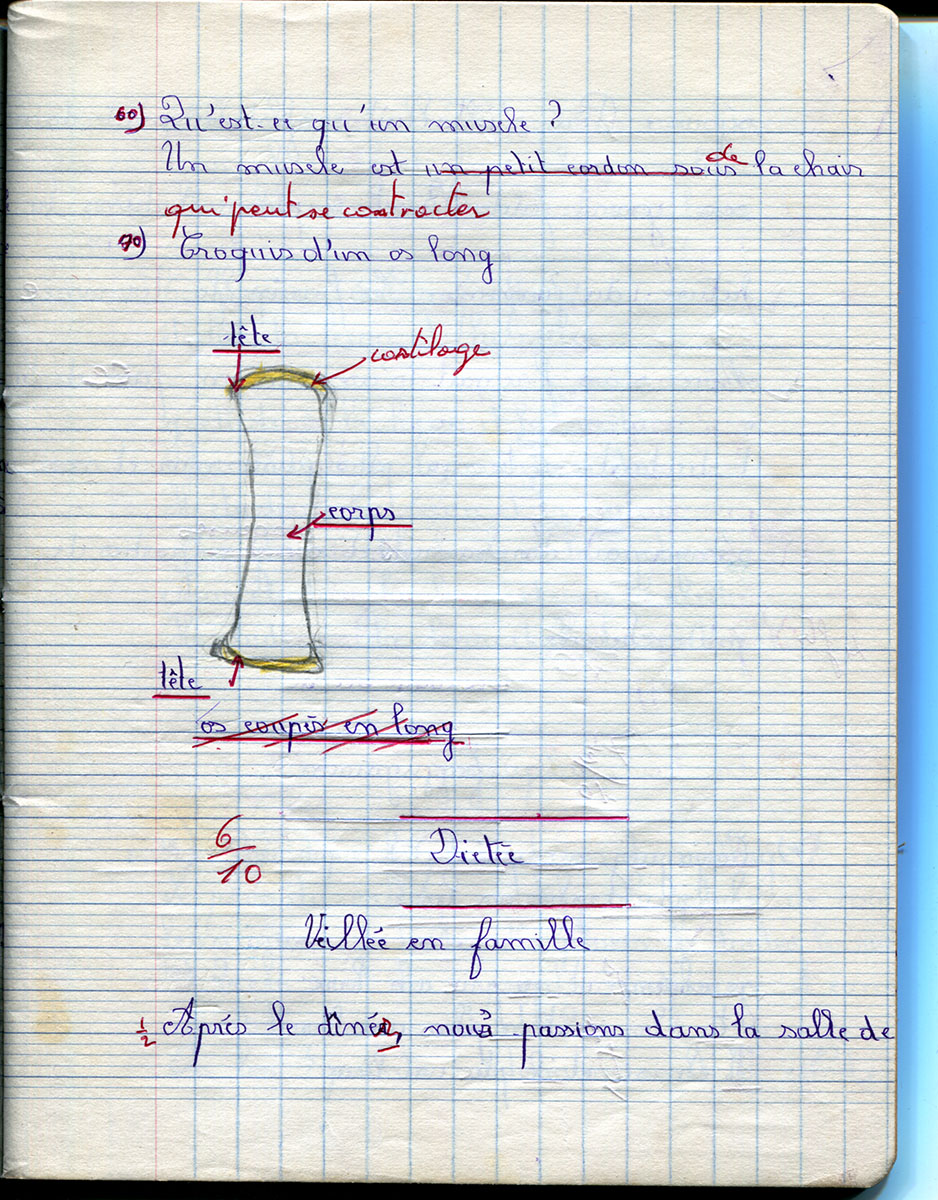 6o) Qu'est-ce qu'un muscle ?
Un muscle est un petit cordon sous de la chair
qui peut se contracter
7o) Croquis d'un os long
tête
cartilage
corps
tête
os coupés en long
6/10
Dictée
Veillée en famille
1/2 Après le dîner, nous passions dans la salle de